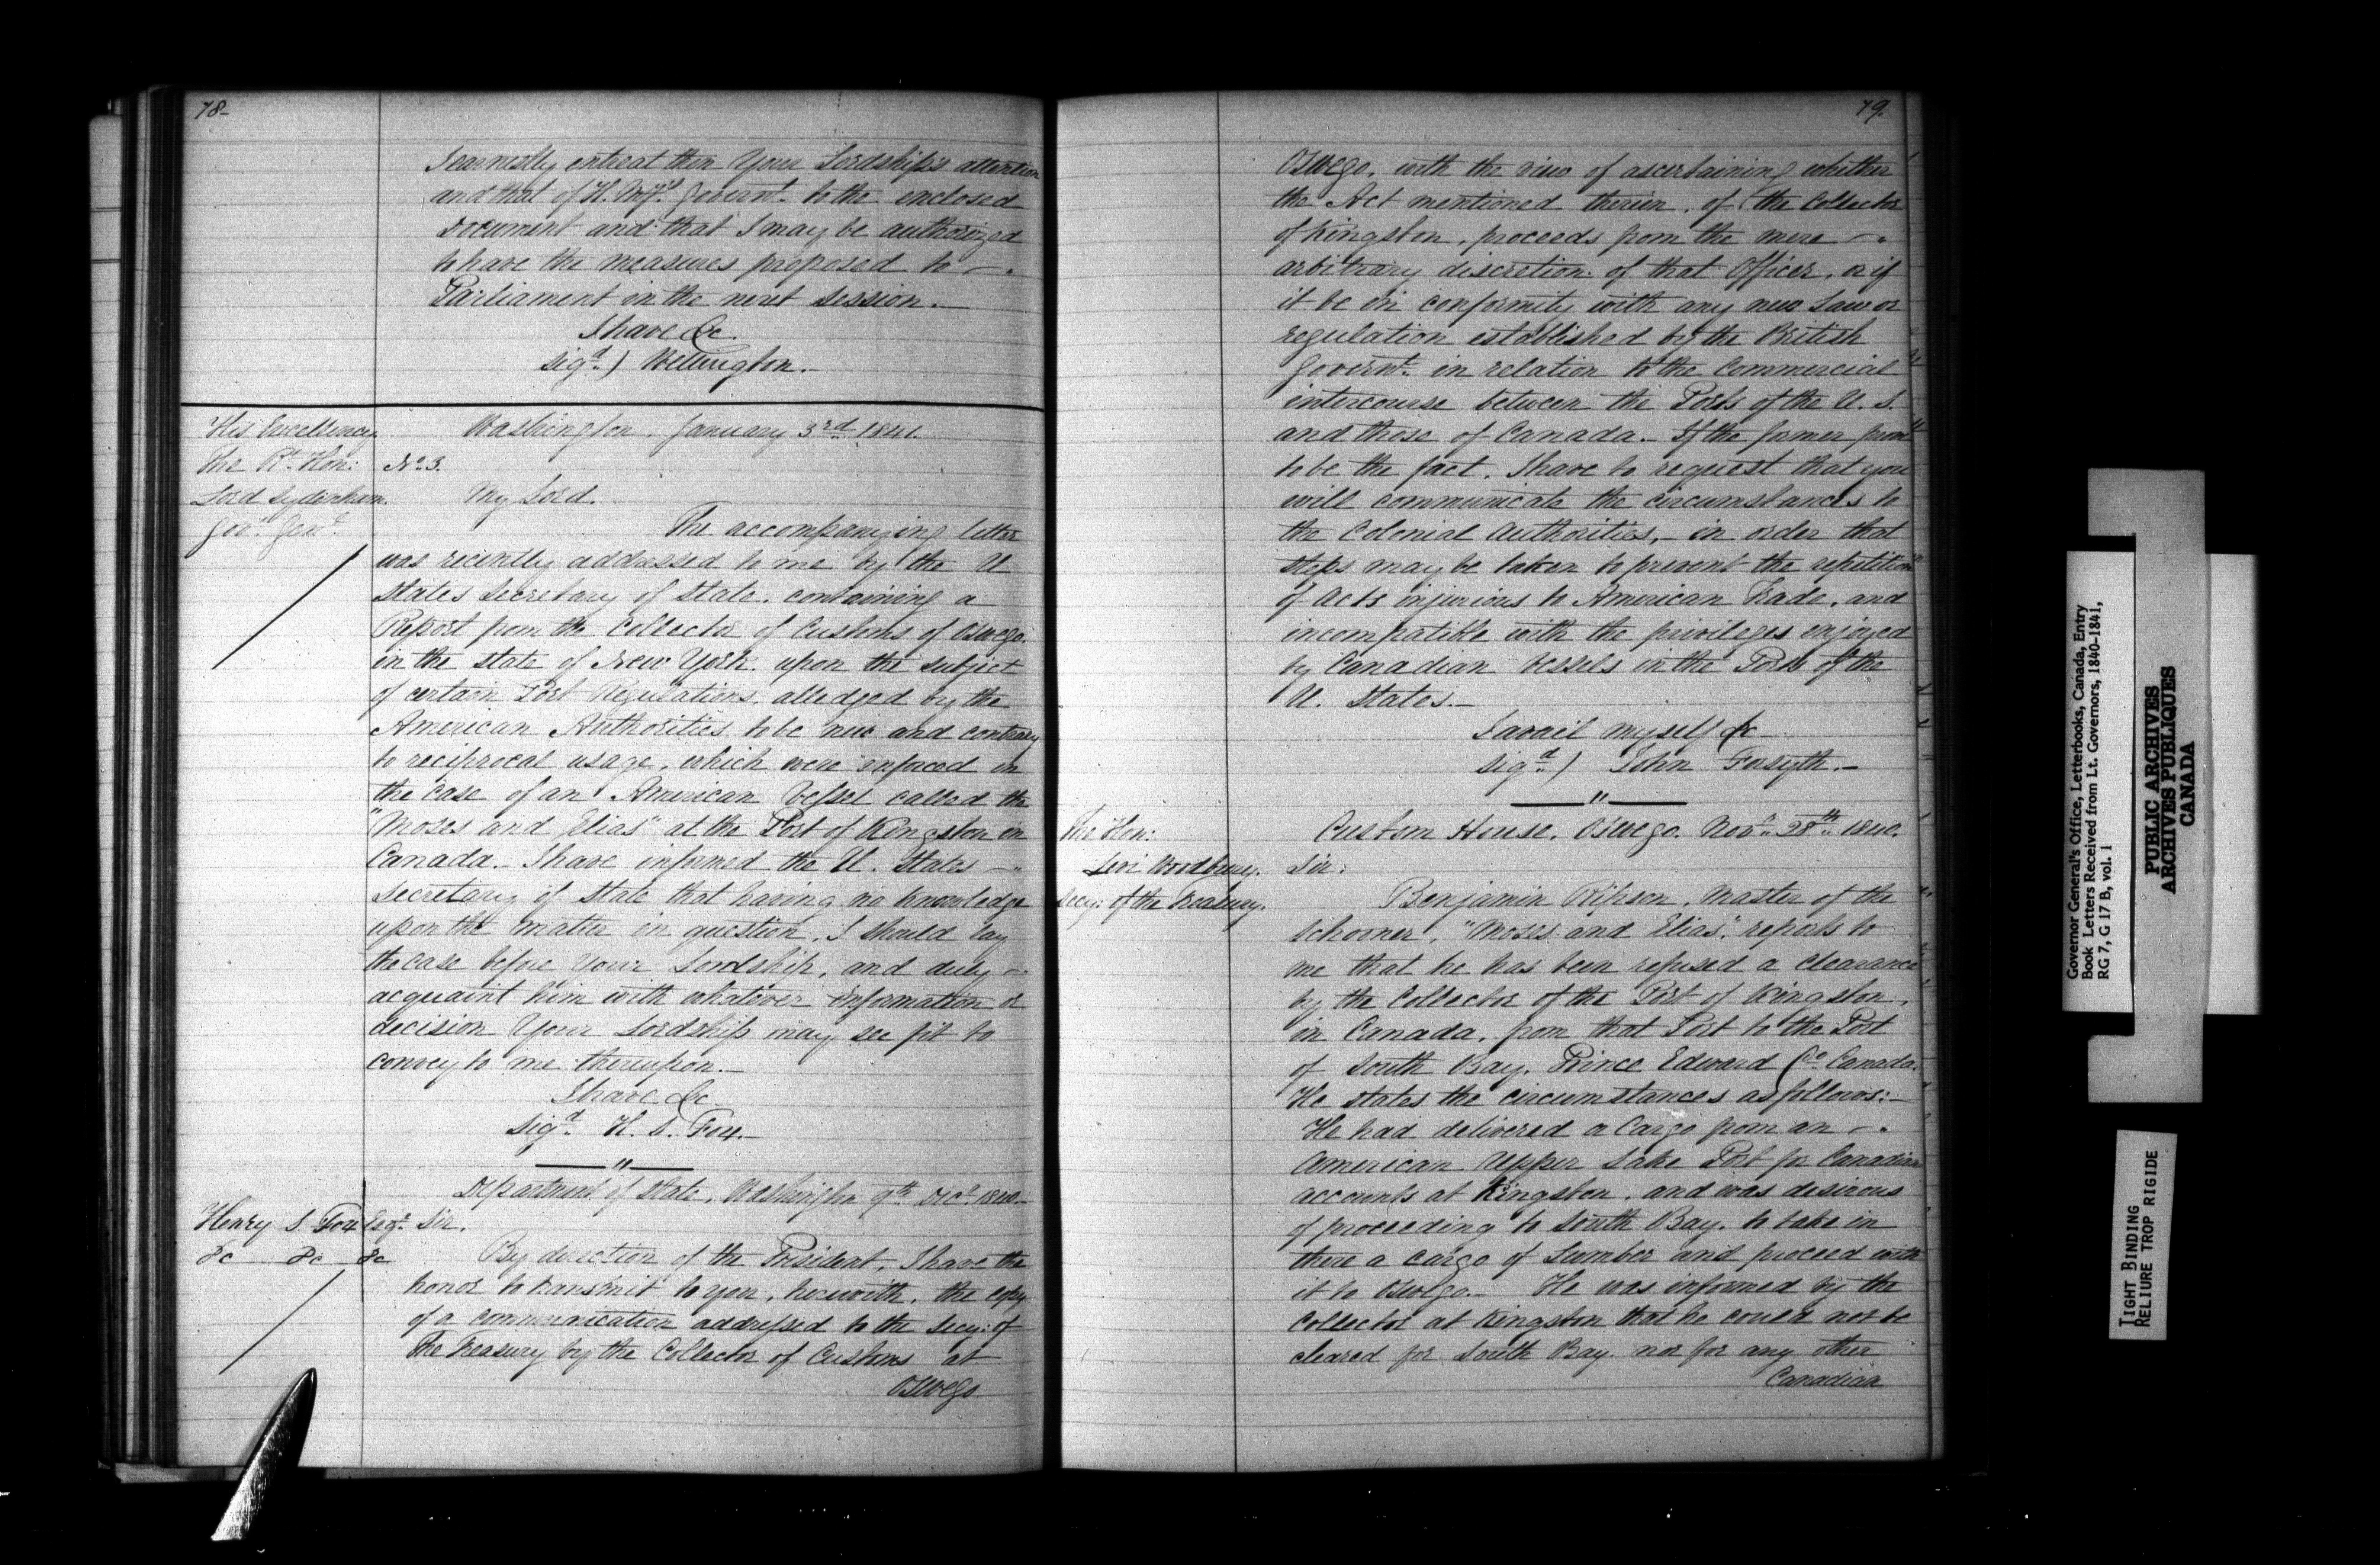 78-
I earnestly entreat then Your Lordship's attention
and that of H. My's. Governt. to the enclosed
document and that I may be authorized
to have the measures proposed to -
Parliament in the next session.-
I have &c
sigd.) Wellington.-
His Excellency
The Rt. Hon:
Lord Sydenham.
Govr. Genl.
Washington. January 3rd 1841.
No. 3.
My Lord.
The accompanying letter
was recently addressed to me by the U
States Secretary of State. containing a
Report from the Collector of Customs of Oswego.
in the state of New York. upon the subject
of certain Port Regulations, alledged by the
American Authorities to be new and contrary
to reciprocal usage, which were enforced in
the case of an American Vessel called the
"Moses and Elias" at the Port of Kingston in
Canada.- I have informed the U. States -
Secretary of State that having no knowledge
upon the matter in question, I should lay
the case before Your Lordship, and duly -
acquaint him with whatever information or
decision Your Lordship may see fit to
convey to me thereupon.-
I have &c
Sigd. H. S. Fox.-
Department of State, Washington 9th Decr. 1840.-
Henry S. Fox Esqr.
&c &c &c
Sir.
By direction of the President, I have the
honor to transmit to you, herewith, the copy
of a communication addressed to the Secy: of
The Treasury by the Collector of Customs at
Oswego
79.
Oswego, with the view of ascertaining whether
the Act mentioned therein, of the Collector
of Kingston, proceeds from the mere -
arbitrary discretion of that Officer, or if
it be in conformity with any new Law or
regulation established by the British
Governt. in relation to the Commercial
intercourse between the Ports of the U. S.
and those of Canada.- If the former prove
to be the fact, I have to request that you
will communicate the circumstances to
the Colonial Authorities,- in order that
steps may be taken to prevent the repetition
of Acts injurious to American Trade, and
incompatible with the privileges enjoyed
by Canadian Vessels in the Ports of the
U. States.-
I avail myself &c-
sigd.) John Forsyth.-
The Hon:
Levi Woodbury.
Secy: of the Treasury.
Custom House, Oswego. Novr. 28th. 1840.
Sir:
Benjamin Ripson, Master of the
Schooner, "Moses and Elias", reports to
me that he has been refused a clearance
by the Collector of the Port of Kingston,
in Canada, from that Port to the Port
of South Bay, Prince Edward Co. Canada.
He states the circumstances as follows:-
He had delivered a Cargo from an -
American Upper Lake Port for Canadian
accounts at Kingston, and was desirous
of proceeding to South Bay. to take in
there a cargo of Lumber and proceed with
it to Oswego.- He was informed by the
Collector at Kingston that he could not be
cleared for South Bay. nor for any other
Canadian
Governor General's Office, Letterbooks, Canada, Entry
Book Letters Received from Lt. Governors, 1840-1841,
RG 7, G 17 B, vol. 1
PUBLIC ARCHIVES
ARCHIVES PUBLIQUES
CANADA
TIGHT BINDING
RELIURE TROP RIGIDE